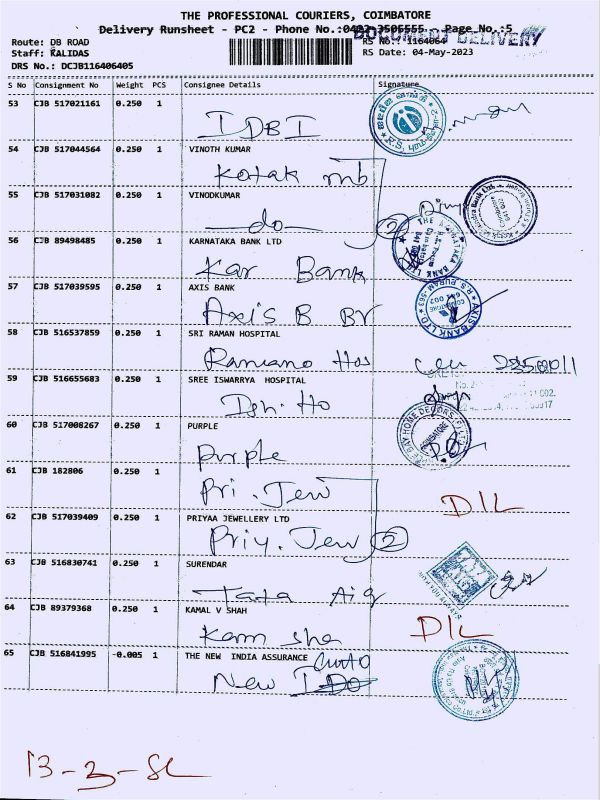 THE PROFESSIONAL COURIERS, COIMBATORE
Delivery Runsheet - PC2 - Phone No.:0422 3505555 Page No.:5
DOCUMENT DELIVERY
Route: DB ROAD RS No.: 1164064
Staff: KALIDAS RS Date: 04-May-2023
DRS No.: DCJB116406405
S No Consignment No Weight PCS Consignee Details Signature
53 CJB 517021161 0.250 1
IDBI
54 CJB 517044564 0.250 1 VINOTH KUMAR
Kotak mb
55 CJB 517031082 0.250 1 VINODKUMAR
do 2
56 CJB 89498485 0.250 1 KARNATAKA BANK LTD
Kar Bank
57 CJB 517039595 0.250 1 AXIS BANK
Axis B Br
58 CJB 516537859 0.250 1 SRI RAMAN HOSPITAL
Hos
59 CJB 516655683 0.250 1 SREE ISWARRYA HOSPITAL
Ish. Ho
60 CJB 517008267 0.250 1 PURPLE
Purple
61 CJB 182806 0.250 1
Pri . Jew D/L
62 CJB 517039409 0.250 1 PRIYAA JEWELLERY LTD
Priy. Jew 2
63 CJB 516830741 0.250 1 SURENDAR
Tata Aig
64 CJB 89379368 0.250 1 KAMAL V SHAH
Kam sha D/L
65 CJB 516841995 -0.005 1 THE NEW INDIA ASSURANCE
New
13-3-SL